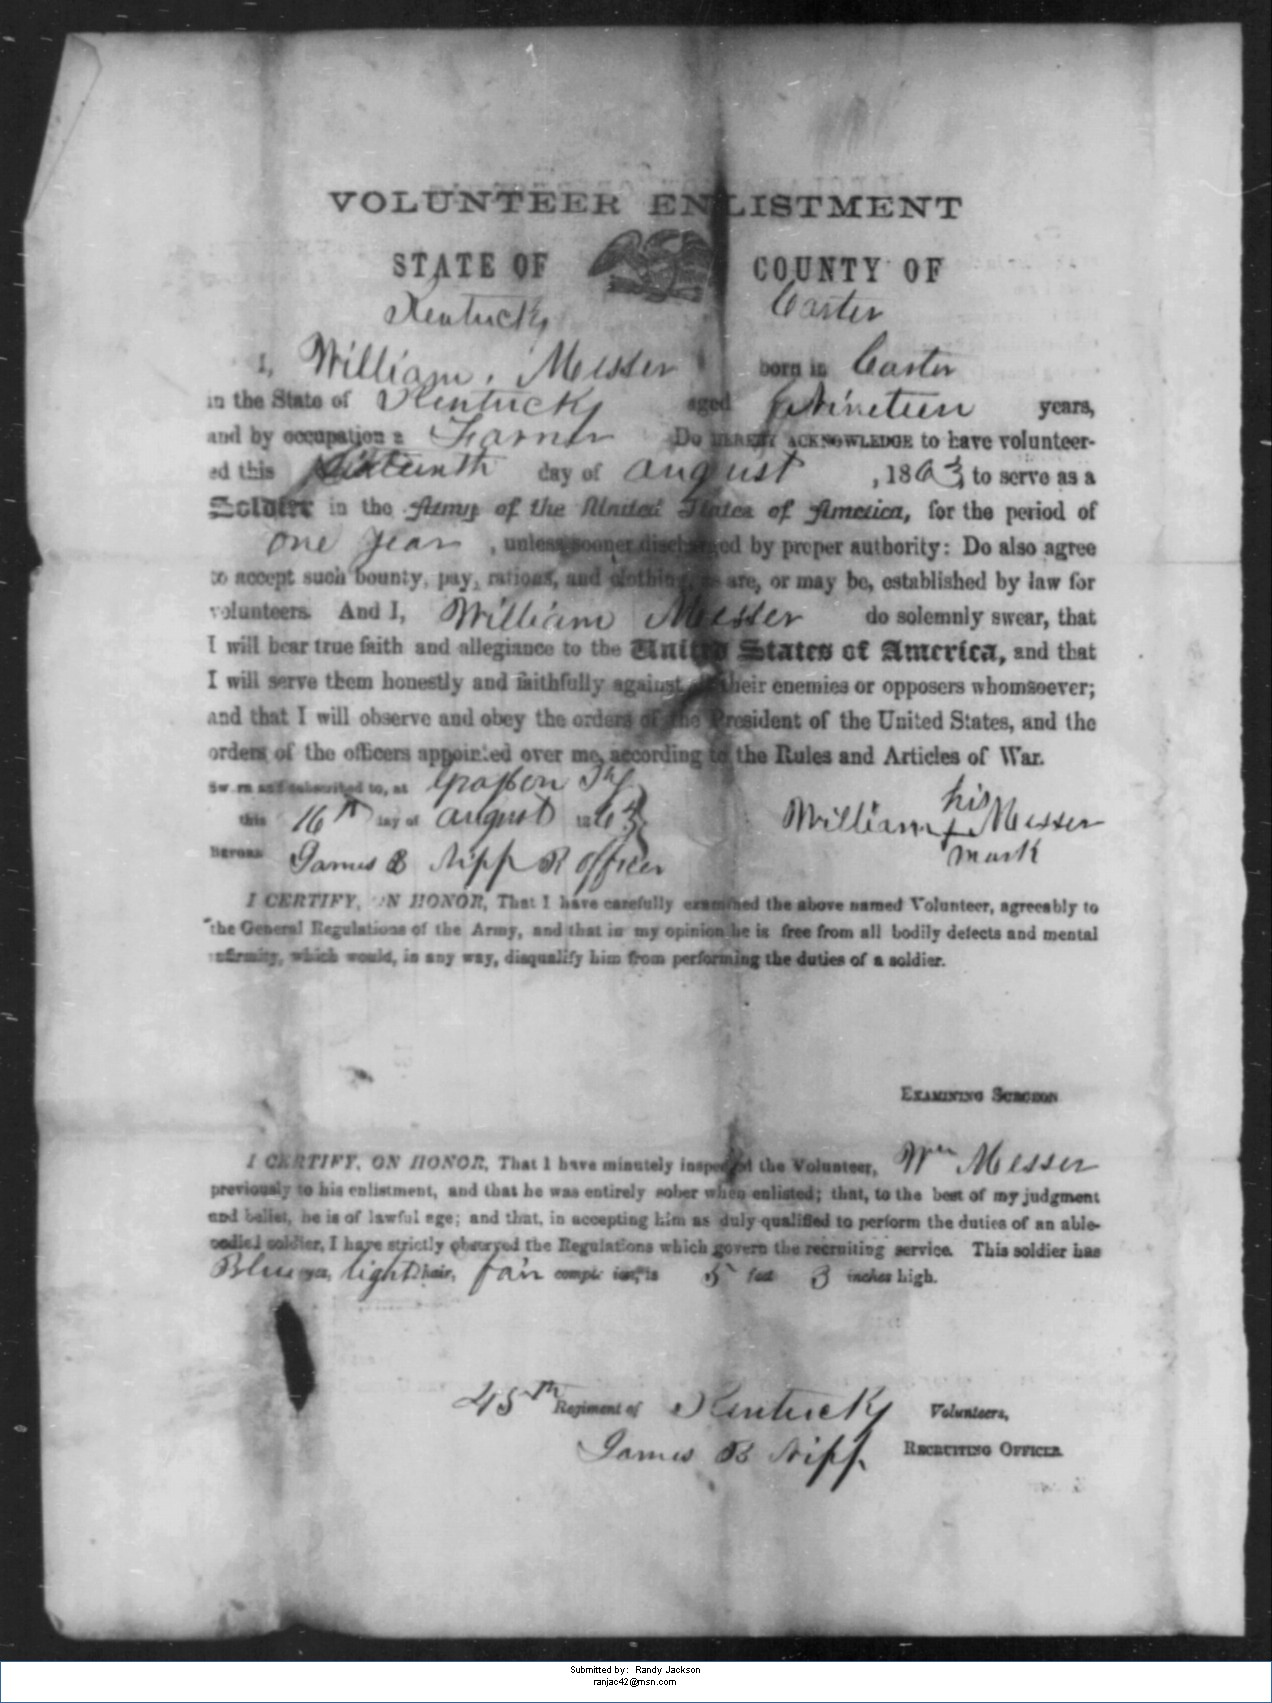 VOLUNTEER ENLISTMENT
STATE OF COUNTY OF
Kentucky Carter
I, William Messer born in Carter
in the State of Kentucky aged Nineteen years,
and by occupation a Farmer Do HEREBY ACKNOWLEDGE to have volunteer-
ed this Sixteenth day of August, 1863, to serve as a
Soldier in the Army of the United States of America, for the period of
one year, unless sooner discharged by proper authority: Do also agree
to accept such bounty, pay, rations, and clothing, as are, or may be, established by law for
volunteers. And I, William Messer do solemnly swear, that
I will bear true faith and allegiance to the United States of America, and that
I will serve them honestly and faithfully against all their enemies or opposers whomsoever;
and that I will observe and obey the orders of the President of the United States, and the
orders of the officers appointed over me, according to the Rules and Articles of War.
Sworn and subscribed to, at Grayson Ky
this 16th day of August 1863
BEFORE James B Nipp R officer
his
William + Messer
mark
I CERTIFY, ON HONOR, That I have carefully examined the above named Volunteer, agreeably to
the General Regulations of the Army, and that in my opinion he is free from all bodily defects and mental
infirmity, which would, in any way, disqualify him from performing the duties of a soldier.
EXAMINING SURGEON
I CERTIFY, ON HONOR, That I have minutely inspected the Volunteer, Wm Messer
previously to his enlistment, and that he was entirely sober when enlisted; that, to the best of my judgment
and belief, he is of lawful age; and that, in accepting him as duly qualified to perform the duties of an able-
bodied soldier, I have strictly observed the Regulations which govern the recruiting service. This soldier has
Blue eyes, light hair, fair complexion, is 5 feet 3 inches high.
45th Regiment of Kentucky Volunteers,
James B Nipp RECRUITING OFFICER
Submitted by: Randy Jackson
ranjac42@msn.com